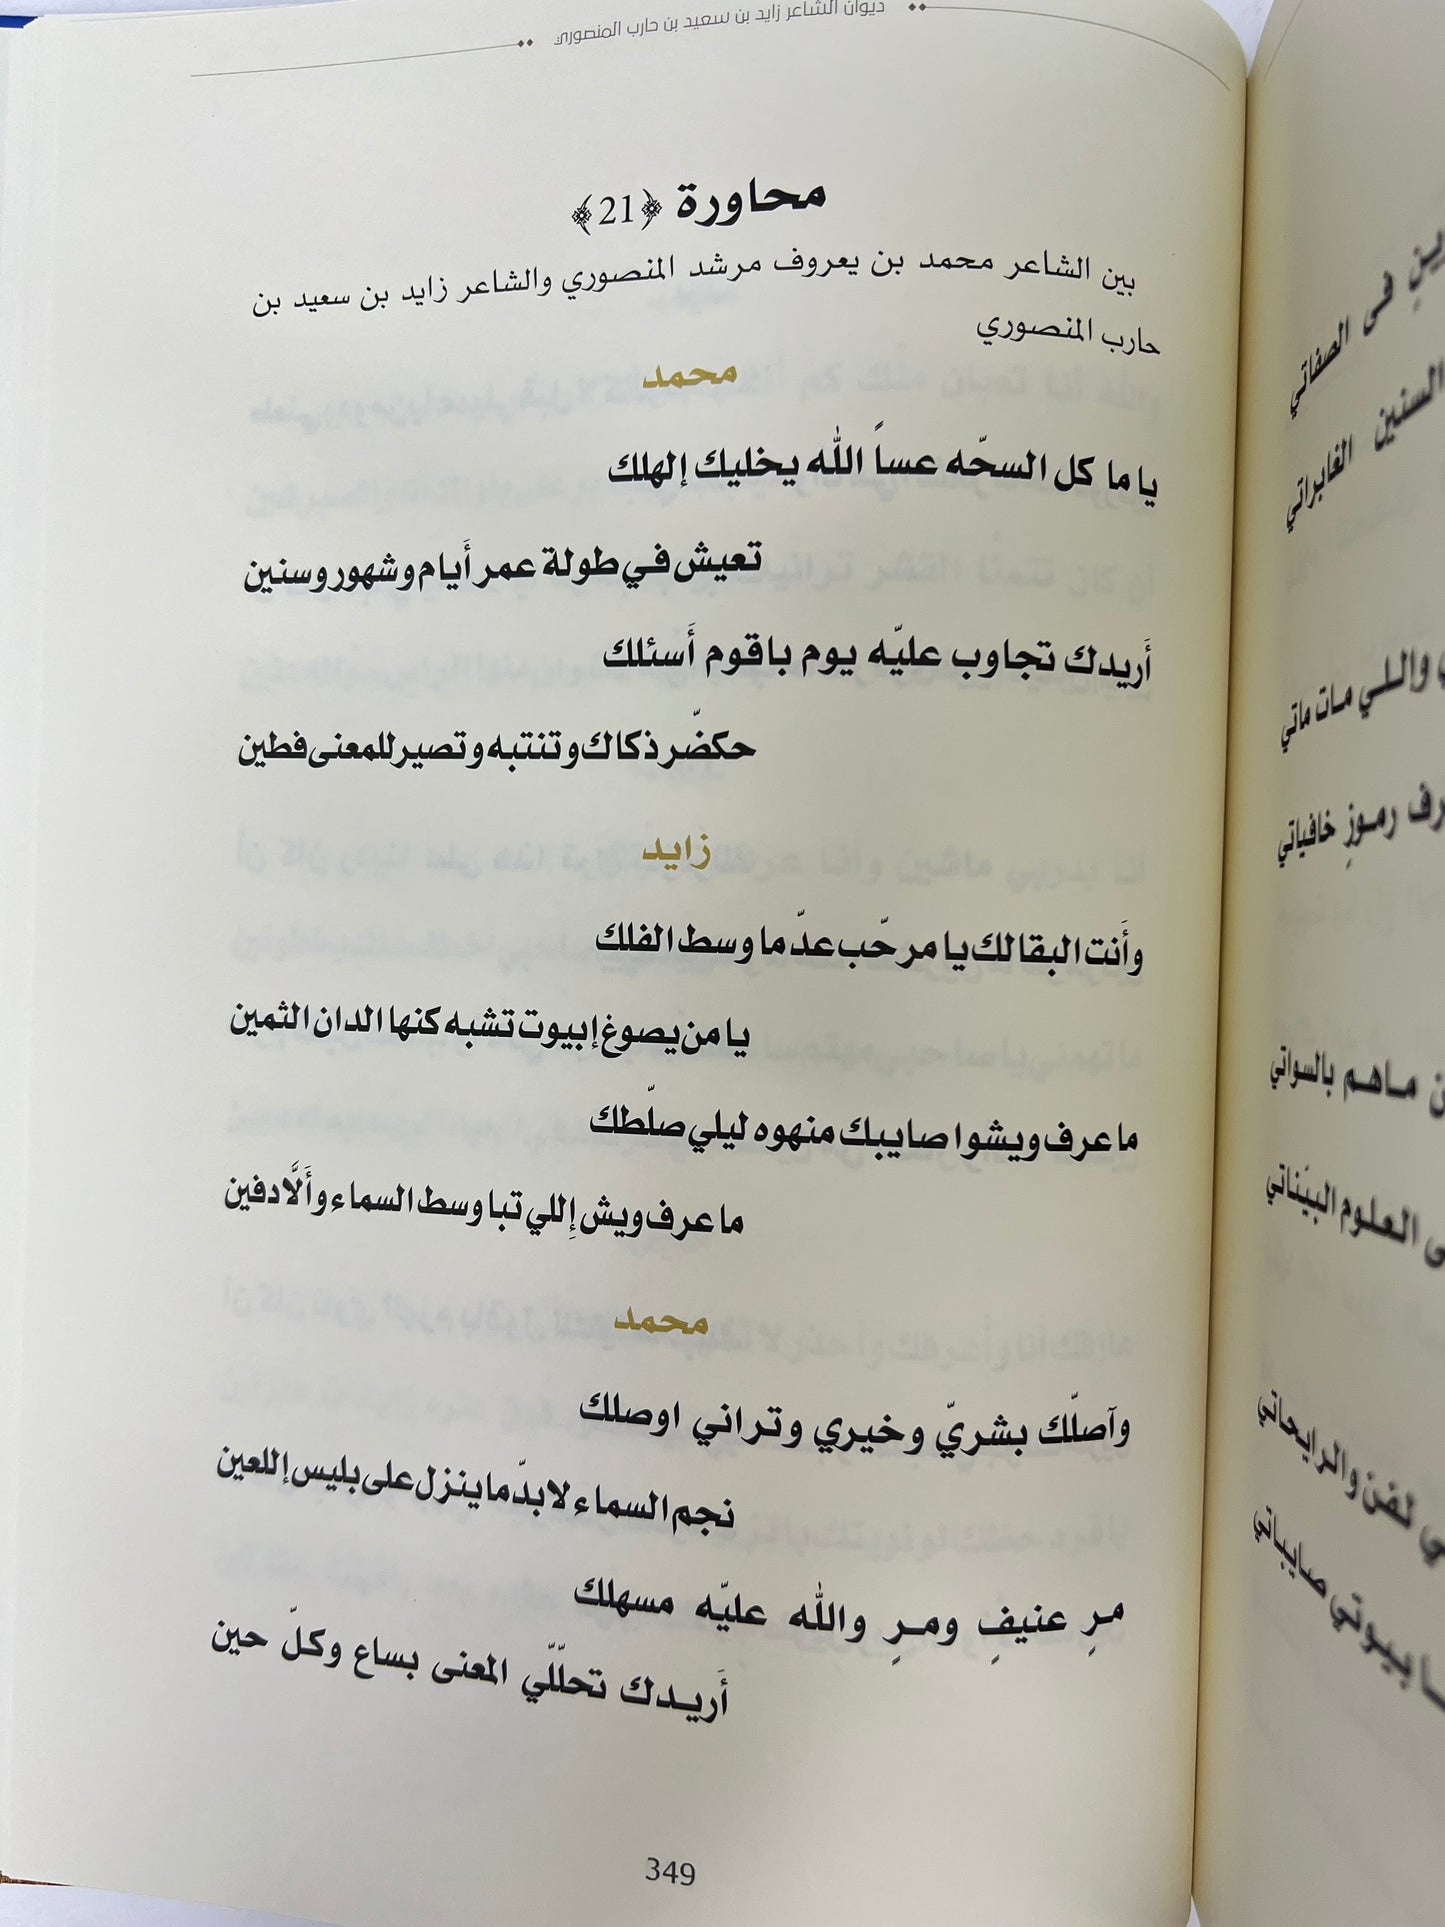 ديوان الشاعر زايد بن سعيد بن حارب المنصوري
محاورة ﴿21﴾
بين الشاعر محمد بن يعروف مرشد المنصوري والشاعر زايد بن سعيد بن
حارب المنصوري
محمد
يا ما كل السحّه عساً الله يخليك إلهلك
تعيش في طولة عمر أَيام وشهور وسنين
أَريدك تجاوب عليّه يوم باقوم أَسئلك
حكضّر ذكاك وتنتبه وتصير للمعنى فطين
زايد
وأَنت البقا لك يا مرحّب عدّ ما وسط الفلك
يا من يصوغ إبيوت تشبه كنها الدان الثمين
ما عرف ويشوا صايبك منهوه ليلي صلّطك
ما عرف ويش إِللي تبا وسط السماء وأَلَّا دفين
محمد
وآصلّك بشريّ وخيري وتراني اوصلك
نجم السماء لا بدّ ما ينزل على بليس إللعين
مرِ عنيفٍ ومرٍ والله عليّه مسهلك
أَريدك تحلّلّي المعنى بساع وكلّ حين
349
في الصفاتي
السنين الغابراتي
واللي مات ماتي
رموزِ خافياتي
ماهم بالسواتي
العلوم البيّناتي
لفن والرايحاتي
بيوتي صايباتي